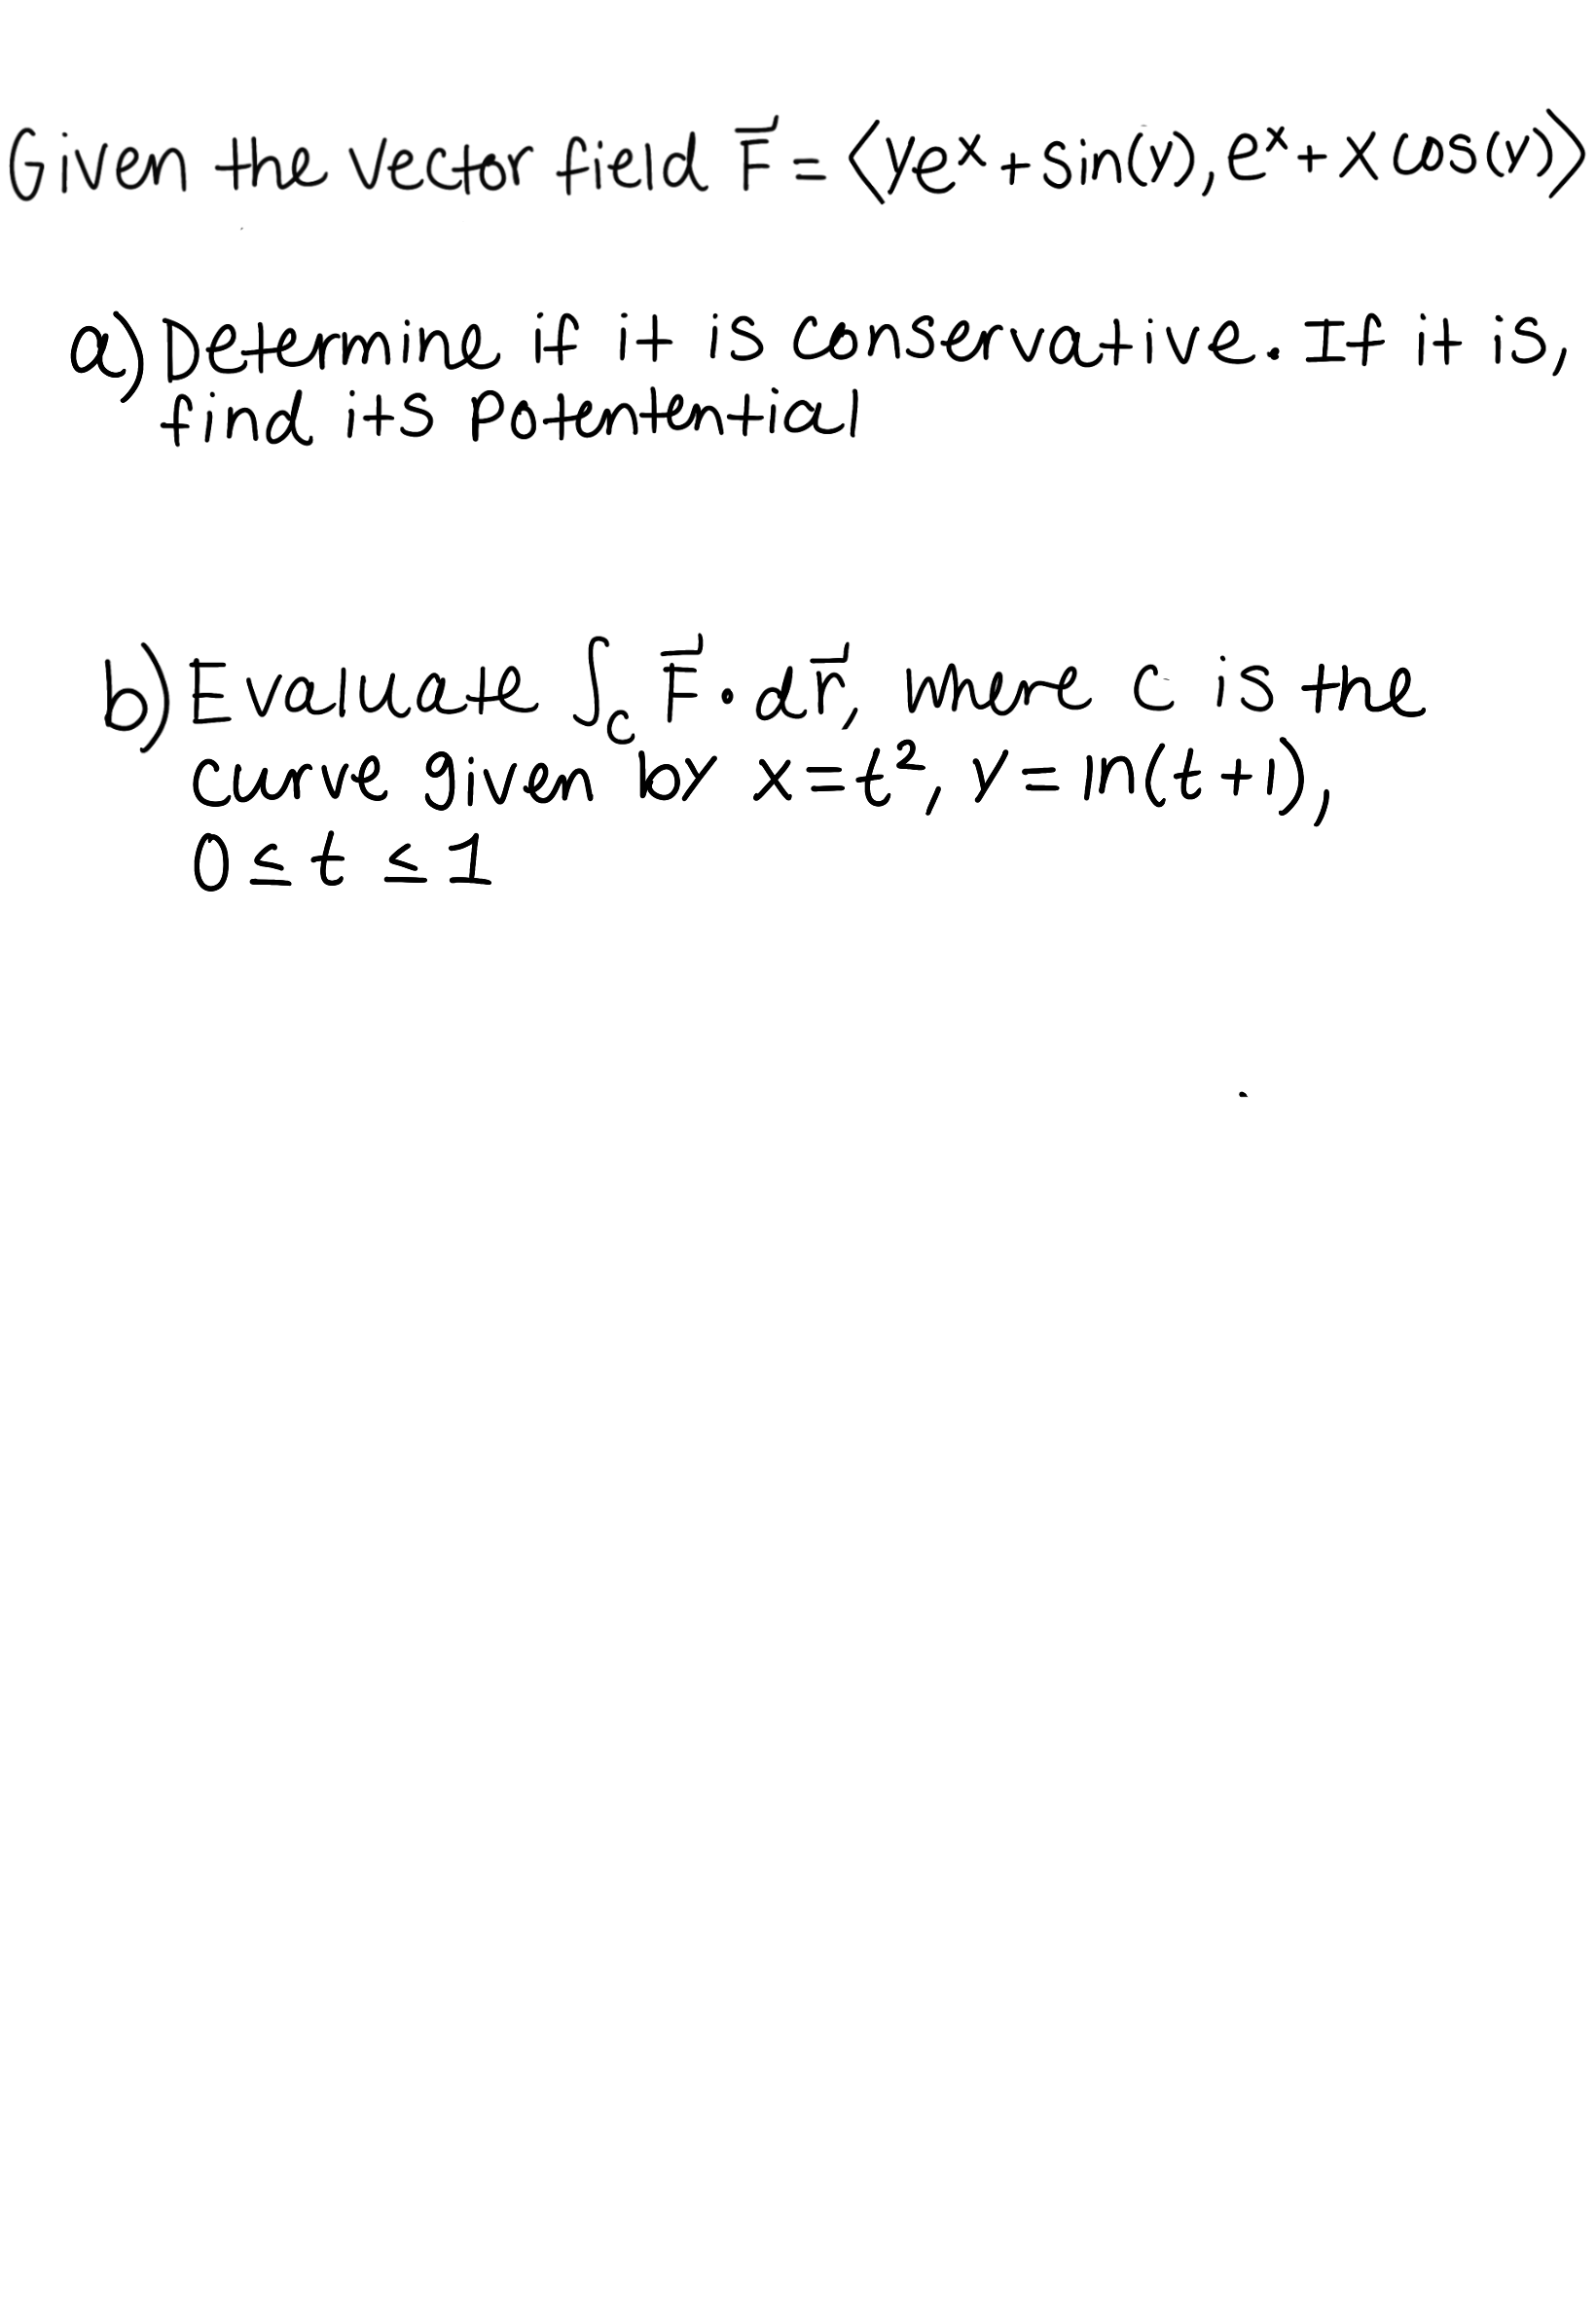 Given the vector field F⃗ = ⟨yeˣ + sin(y), eˣ + x cos(y)⟩
a) Determine if it is conservative. If it is,
find its potentential
b) Evaluate ∫_c F⃗ · dr⃗, where c is the
curve given by x = t², y = ln(t+1),
0 ≤ t ≤ 1